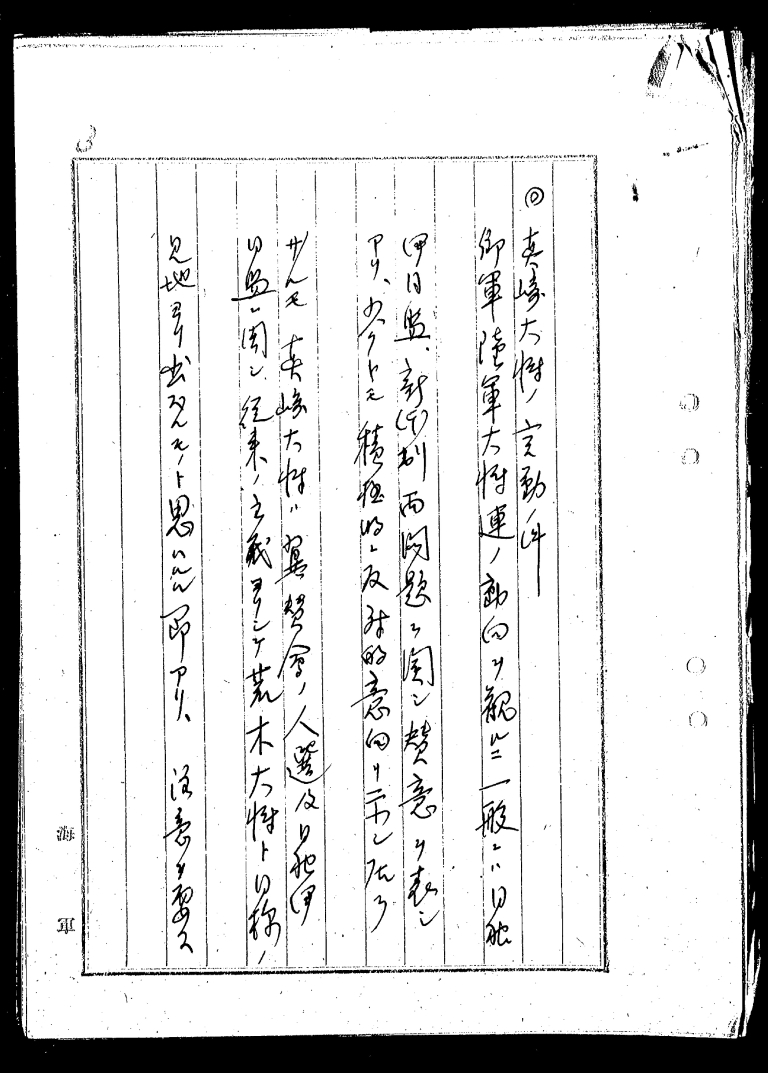 ◎ 真崎大将ノ言動ノ件
御軍陸軍大将連ノ動向ヲ観ルニ一般ニハ日独
伊同盟、新体制両問題ニ関シ賛意ヲ表シ
アリ、少クトモ積極的ニ反対的意向ヲ示シ居ラ
サルモ真崎大将ハ翼賛会ノ人選及日独伊
同盟ニ関シ従来ノ主義ヨリシテ荒木大将ト同様ノ
見地ヨリ出タルモノト思ハルル節アリ、注意ヲ要ス
海軍